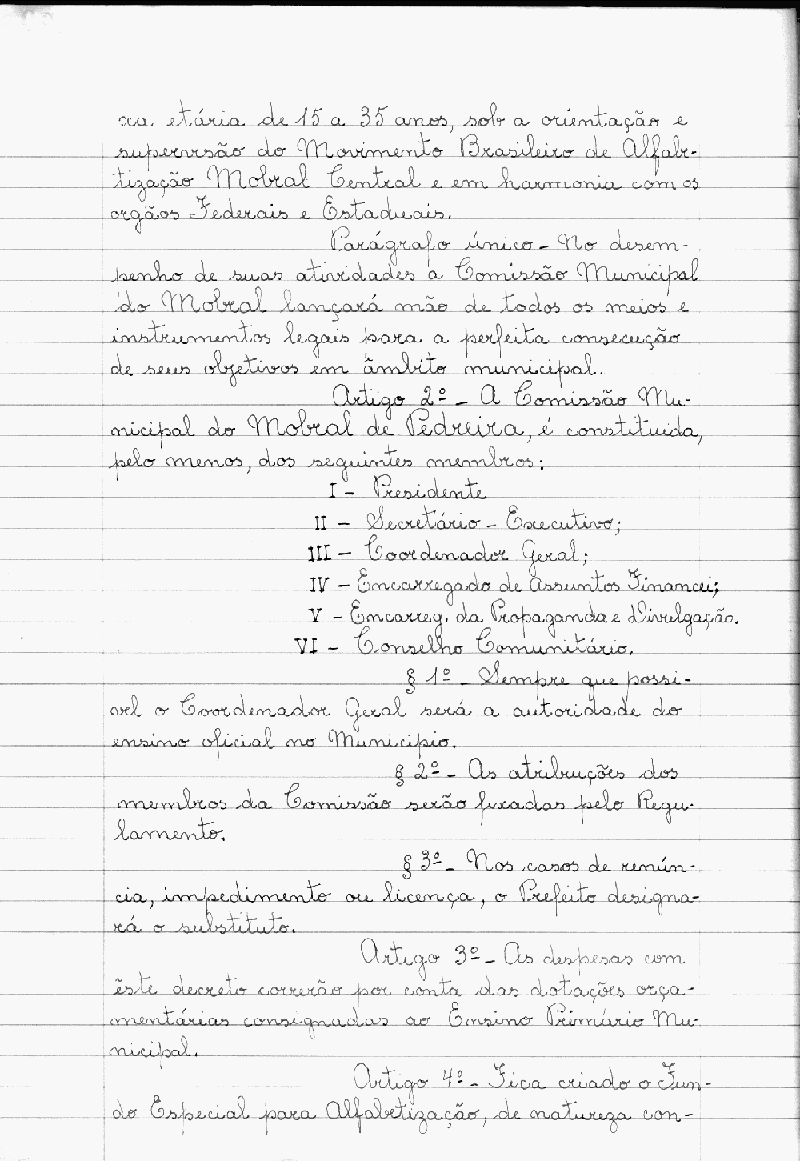 xa. etária de 15 a 35 anos, sob a orientação e
supervisão do Movimento Brasileiro de Alfabe-
tização Mobral Central e em harmonia com os
orgãos Federais e Estaduais.
Parágrafo único - No desem-
penho de suas atividades a Comissão Municipal
do Mobral lançará mão de todos os meios e
instrumentos legais para a perfeita consecução
de seus objetivos em âmbito municipal.
Artigo 2º - A Comissão Mu-
nicipal do Mobral de Pedreira, é constituida,
pelo menos, dos seguintes membros:
I - Presidente
II - Secretário - Executivo;
III - Coordenador Geral;
IV - Encarregado de Assuntos Financei;
V - Encarreg. da Propaganda e Divulgação.
VI - Conselho Comunitário.
§ 1º - Sempre que possi-
vel o Coordenador Geral será a autoridade do
ensino oficial no Municipio.
§ 2º - As atribuções dos
membros da Comissão serão fixadas pelo Regu-
lamento.
§ 3º - Nos casos de renún-
cia, impedimento ou licença, o Prefeito designa-
rá o substituto.
Artigo 3º - As despesas com
êste decreto correrão por conta das dotações orça-
mentárias consignadas ao Ensino Primário Mu-
nicipal.
Artigo 4º - Fica criado o Fun-
do Especial para Alfabetização, de natureza con-